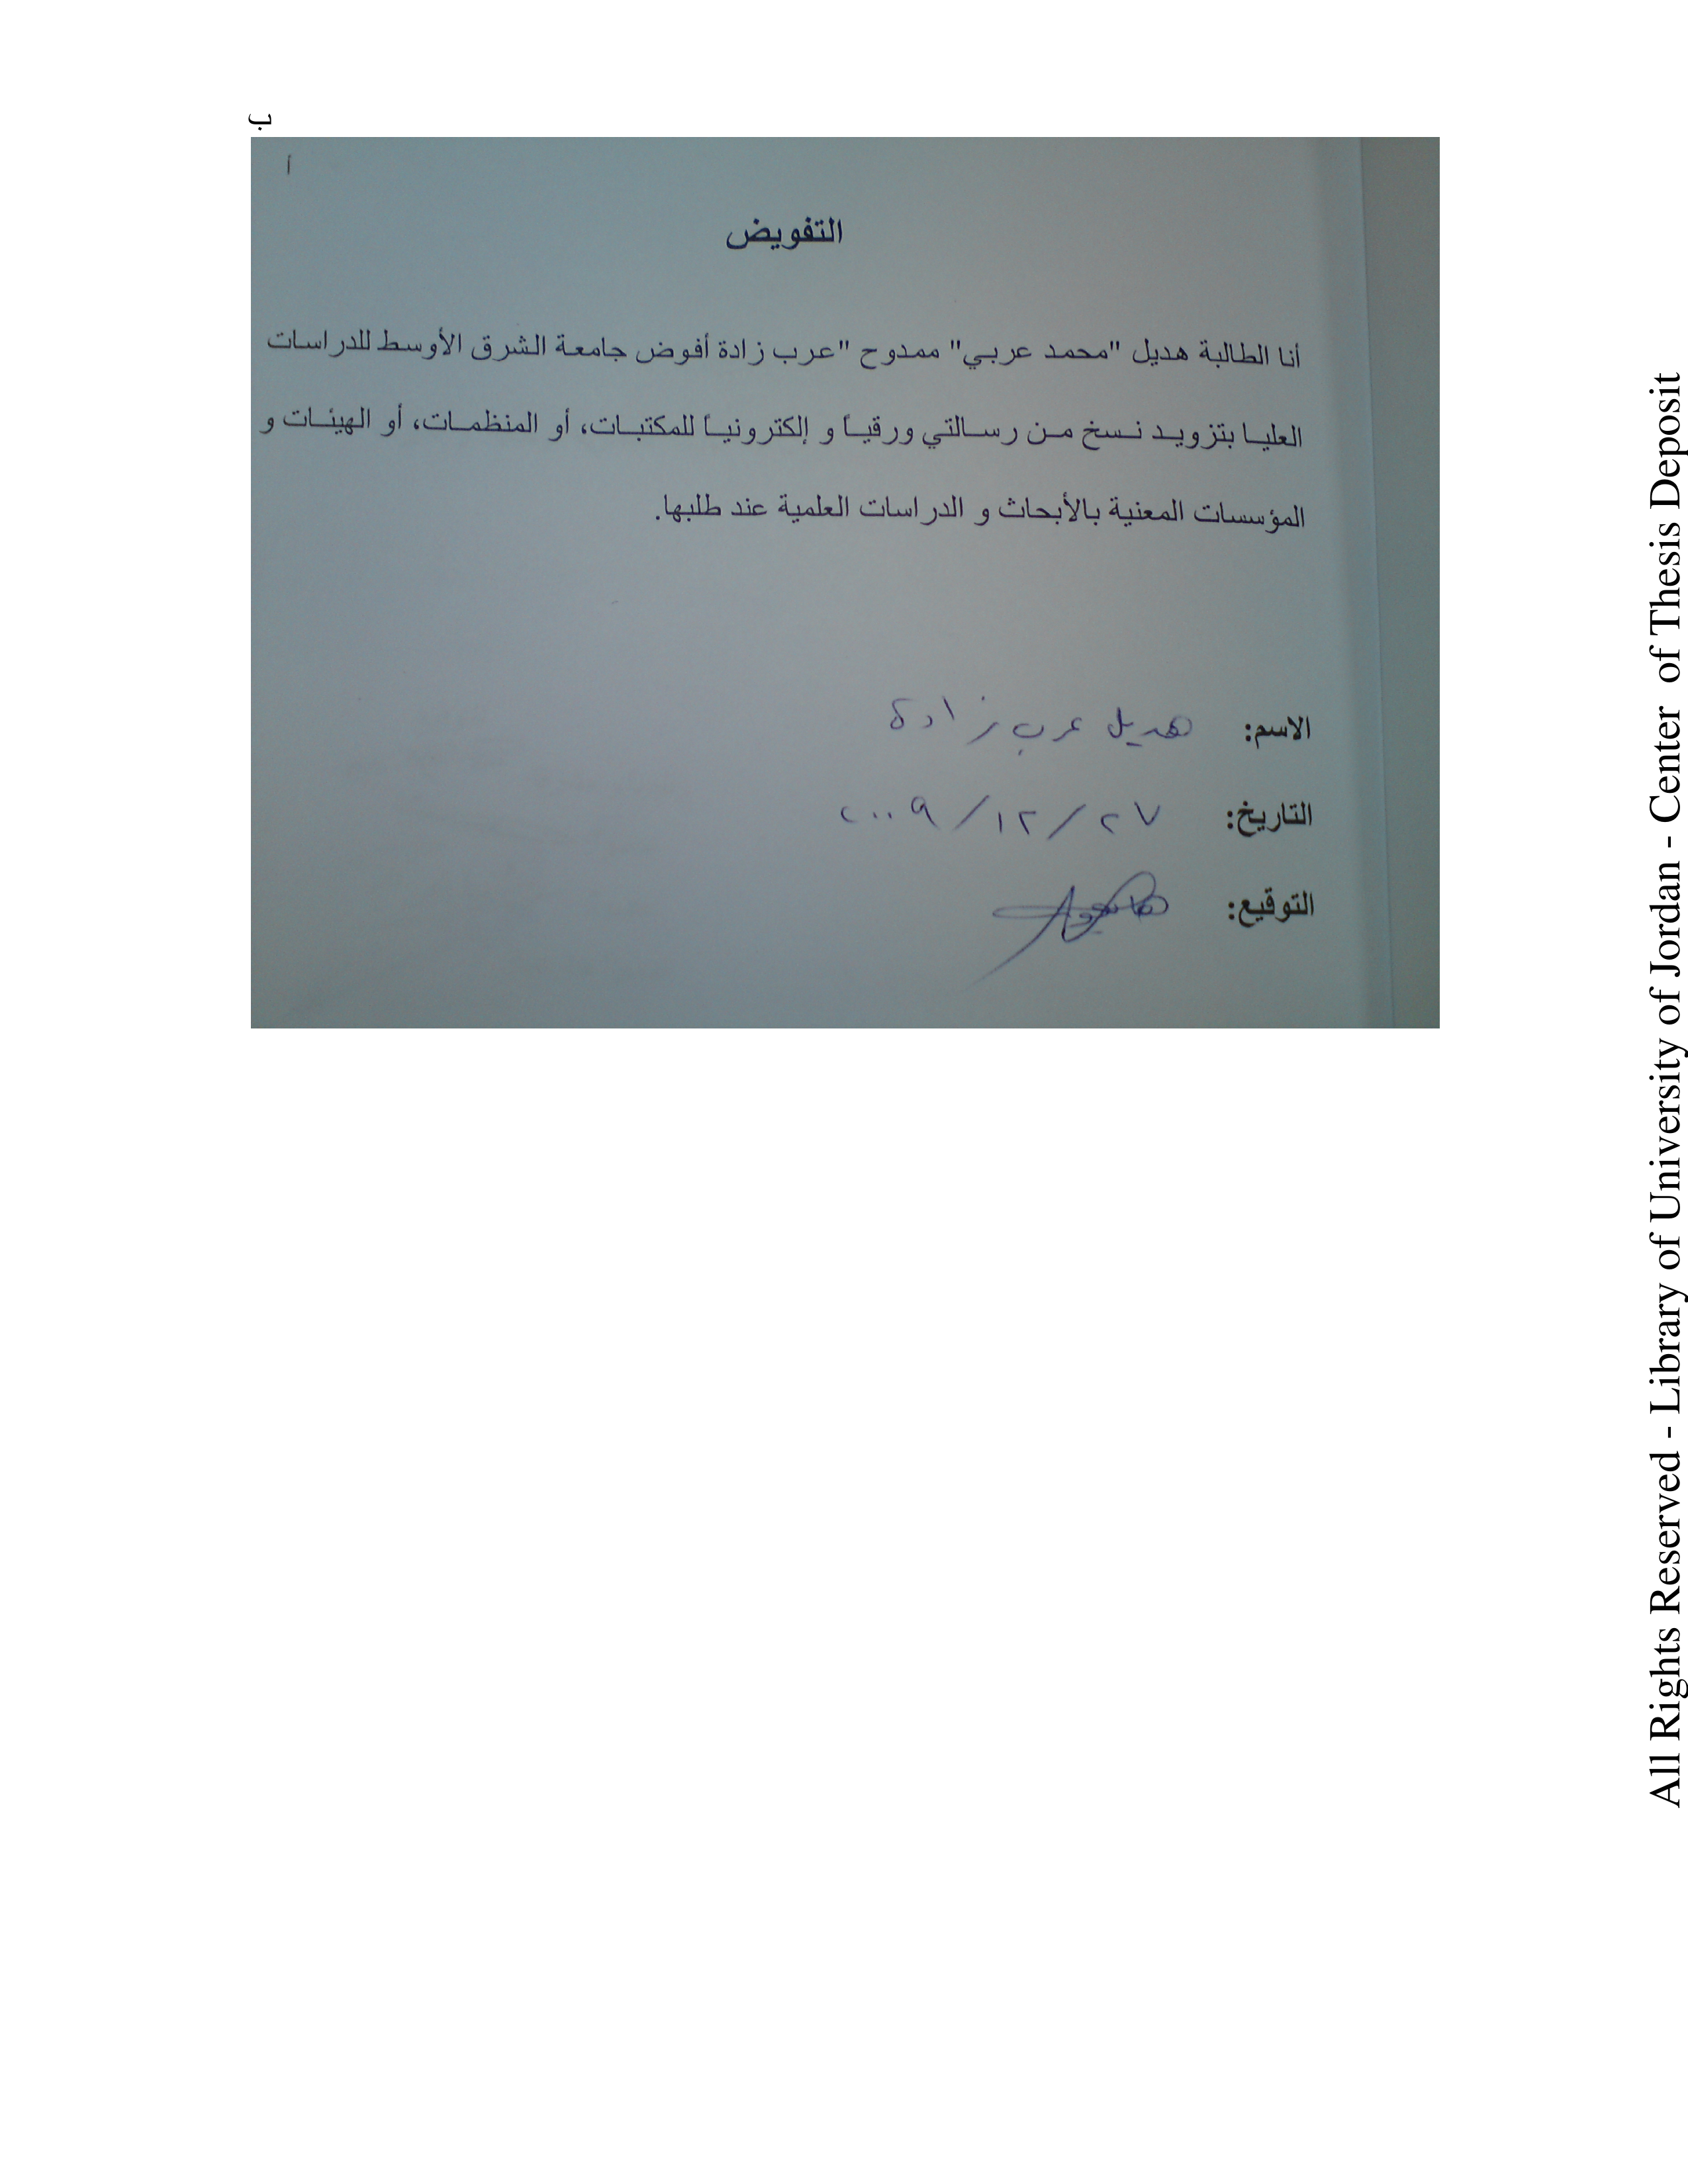 ب
أ
التفويض
أنا الطالبة هديل "محمد عربي" ممدوح "عرب زادة أفوض جامعة الشرق الأوسط للدراسات
العليا بتزويد نسخ من رسالتي ورقياً و إلكترونياً للمكتبات، أو المنظمات، أو الهيئات و
المؤسسات المعنية بالأبحاث و الدراسات العلمية عند طلبها.
الاسم: هديل عرب زادة
التاريخ: ٢٧/١٢/٢٠٠٩
التوقيع:
All Rights Reserved - Library of University of Jordan - Center of Thesis Deposit